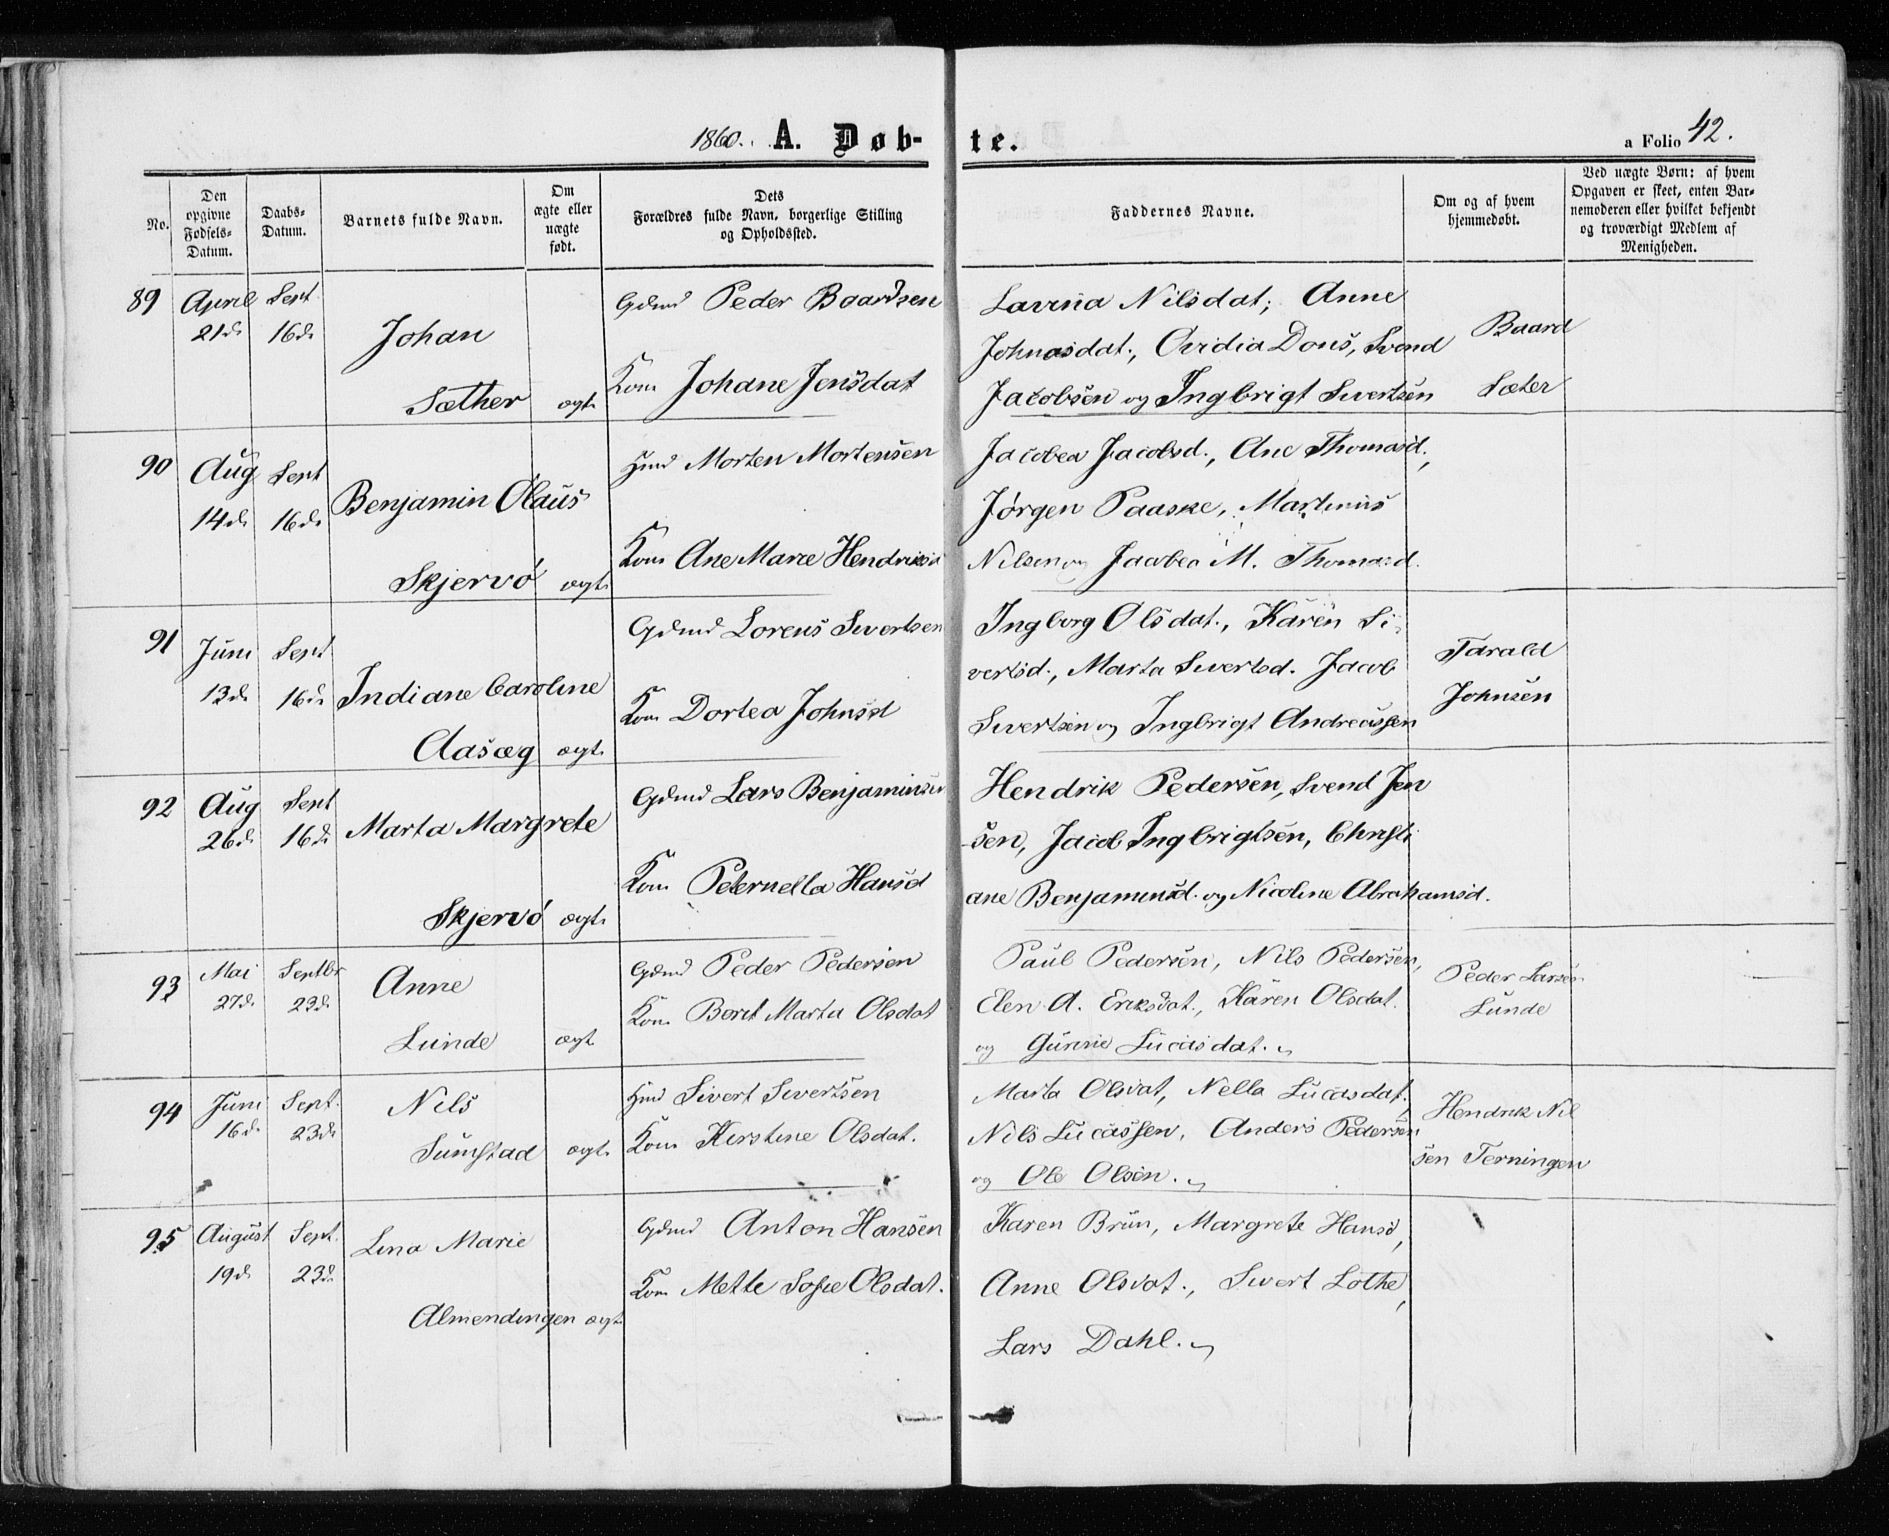 1860. A. Døb- te. a Folio 42.
No.
Den opgivne Fødsels-Datum.
Daabs-Datum.
Barnets fulde Navn.
Om ægte eller uægte født.
Dets Forældres fulde Navn, borgerlige Stilling og Opholdssted.
Faddernes Navne.
Om og af hvem hjemmedøbt.
Ved uægte Børn: af hvem Opgaven er skeet, enten Barnemoderen eller hvilket bekjendt og troværdigt Medlem af Menigheden.
89 April Sept Gdmd Peder Baardsen Lavina Nilsdat; Anne
21d. 16d. Johan Johnasdat., Ovidia Dons, Svend Baard
Sæther ægt. Kom Johane Jensdat Jacobsen og Ingbrigt Sivertsen Sæter
90 Aug Sept Hmd Morten Mortensen Jacobea Jacobsd., Ane Thomasd.,
14d. 16d. Benjamin Olaus Jørgen Paaske, Martinus
Skjervø ægt. Kom Ane Marie Hendriksd Nilsen og Jacobea M. Thomasd.
91 Juni Sept Gdmd Lorens Sivertsen Ingborg Olsdat., Karen Si-
13d. 16d. Indiane Caroline vertsd., Marta Sivertsd. Jacob Tarald
Aasæg ægt. Kom Dortea Johnsd Sivertsen og Ingbrigt Andreassen Johnsen
92 Aug Sept Gdmd Lars Benjaminsen Hendrik Pedersen, Svend Jen
26d. 16d. Marta Margrete -sen, Jacob Ingbrigtsen, Christi
Skjervø ægt. Kom Peternella Hansd ane Benjaminsd. og Nicoline Abrahamsd.
93 Mai Septbr Anne Gdmd Peder Pedersen Paul Pedersen, Nils Pedersen, Peder Larsen
27d. 23d. Kom Berit Marta Olsdat Elen A. Eriksdat., Karen Olsdat. Lunde
Lunde ægt og Gunnie Lucasdat.
94 Juni Sept. Nils Hmd Sivert Sivertsen Marta Olsdat, Nella Lucasdat., Hendrik Nil
16d. 23d. Sumstad ægt. Kom Kirstine Olsdat. Nils Lucassen, Anders Pedersen sen Terningen
og Ole Olsen.
95 August Sept. Lina Marie Gdmd Anton Hansen Karen Brun, Margrete Hansd,
19d. 23d. Kom Mette Sofie Olsdat. Anne Olsdat., Sivert Lothe,
Almendingen ægt. Lars Dahl.